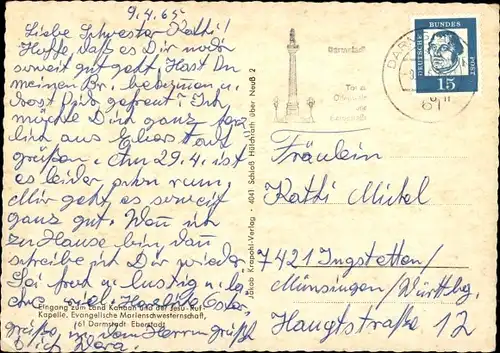 9.4.65
Liebe Schwester Kathi!
Hoffe, daß es Dir noch
soweit gut geht. Hast Du
meinen Br. bekommen u.
Dich gefreut? Ich
möchte Dich ganz herz
lich aus Eberstadt
grüßen. Am 29.4. ist
es leider schon rum.
Mir geht es soweit
ganz gut. Wenn ich
zu Hause bin, dann
schreibe ich Dir wieder.
Sei froh u. lustig u.
viel. Herzliche Oster
grüße im Herrn grüßt
Dich
Eingang zum Land Kanaan und der Jesu-Ruf-
Kapelle. Evangelische Marienschwesternschaft,
(61 Darmstadt Eberstadt
Jakob Krapohl-Verlag · 4041 Schloß Hülchrath über Neuß 2
Darmstadt
DARMS
DEUTSCHE
BUNDES
POST
15
Fräulein
Kathi Mickel
7421 Ingstetten/
Münsingen/Württbg
Hauptstraße 12